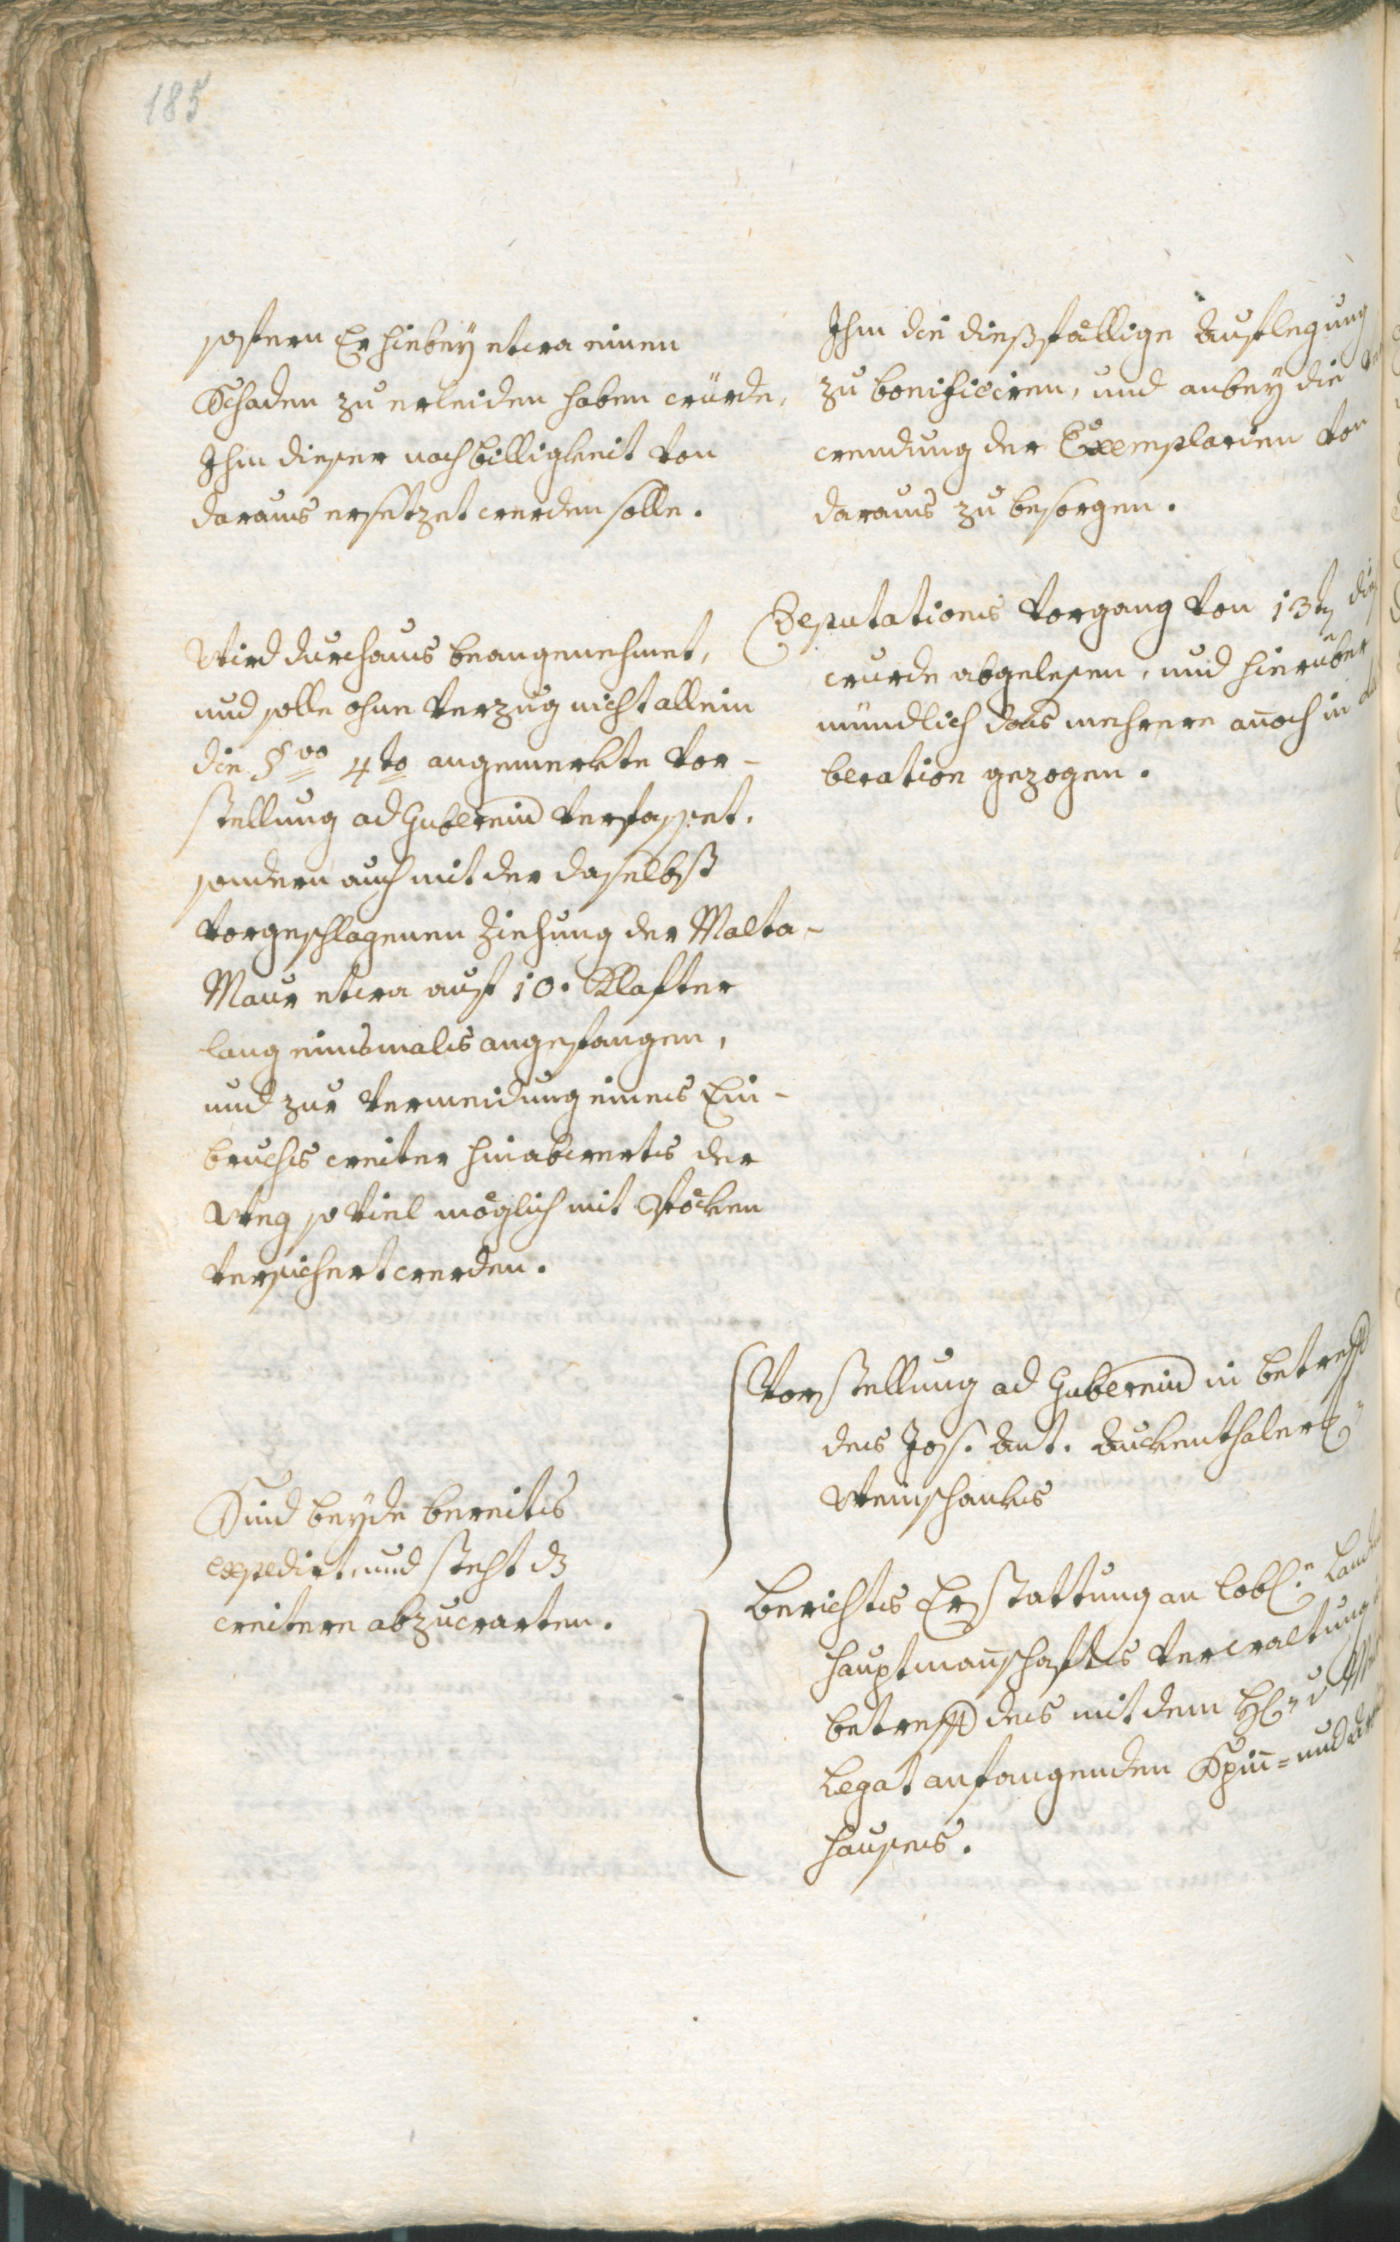 185
sofern Er hiebey etwa einen
Schaden zu erleiden haben würde,
Ihm dieser nach billigkeit von
daraus ersetzet werden solle.
Wird durchaus beangenehmet,
und solle ohne Verzug nicht allein
die §vo 4to angemerkte Vor-
stellung ad Gubernium verfasset,
sondern auch mit der daselbst
vorgeschlagenen Ziehung der Malta-
Maur etwa auf 10. Klafter
lang einsmals angefangen,
und zur Vermeidung eines Ein-
bruchs weiter hinabwerts der
Weg so viel möglich mit Stöcken
versichert werden.
Sind beyde bereits
expedirt, und steht dz
weitere abzuwarten.
Ihm die dießfällige Auslegung
zu bonificiren, und anbey die
wendung der Exemplarien von
daraus zu besorgen.
Deputations Vorgang von 13t
wurde abgelesen, und hierüber
mündlich das mehrere anoch in
beration gezogen.
Vorstellung ad Gubernium in betreff
des Jos. Ant. Auckenthaler
Weinschanks
Berichts Erstattung an löbl.e Land
hauptmanschafts Verwaltung
betreff des mit dem
Legat anfangenden Spin- und
hauses.